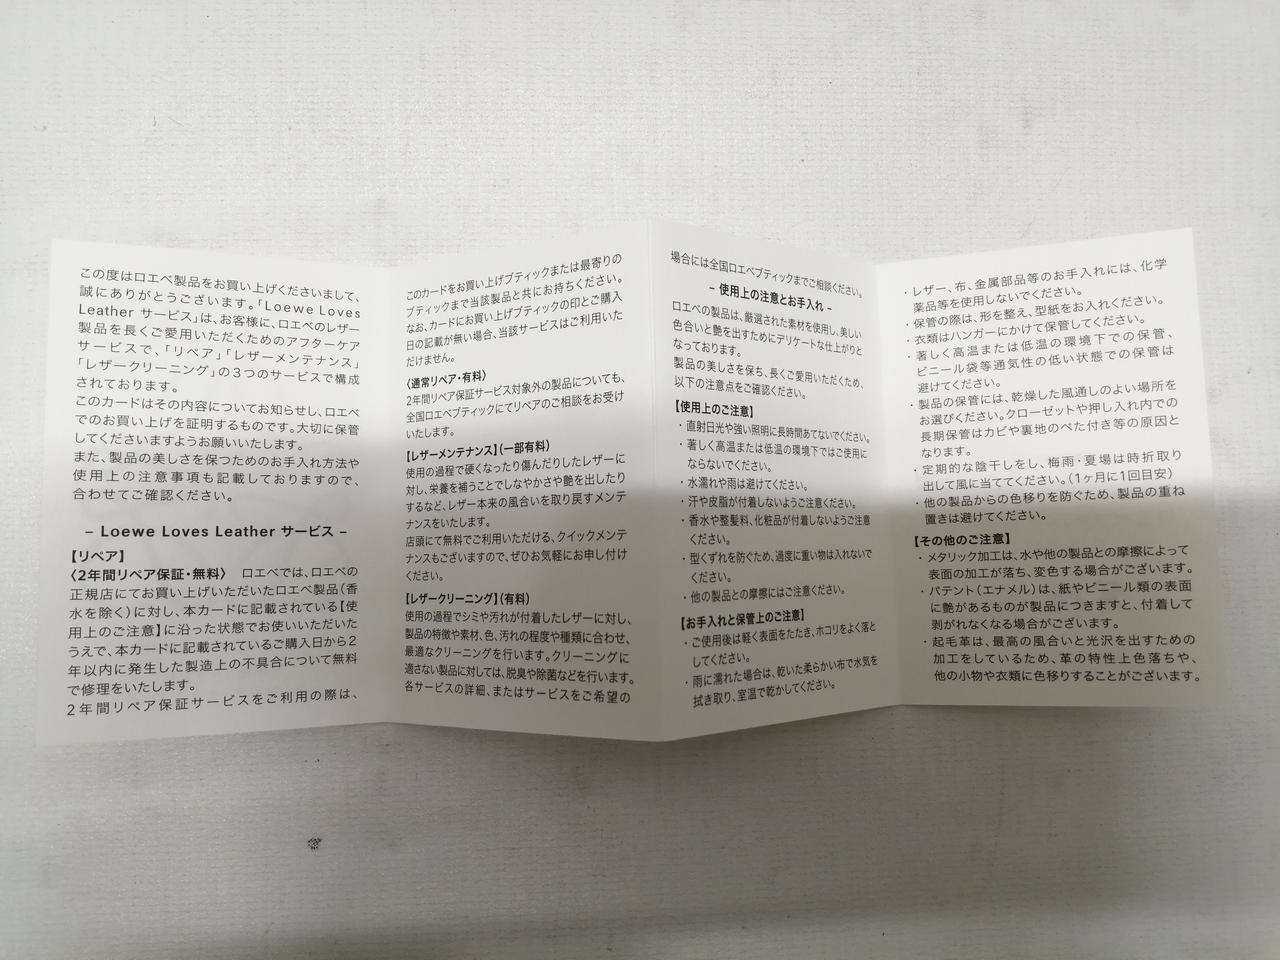 この度はロエベ製品をお買い上げくださいまして、
誠にありがとうございます。「Loewe Loves
Leather サービス」は、お客様に、ロエベのレザー
製品を長くご愛用いただくためのアフターケア
サービスで、「リペア」「レザーメンテナンス」
「レザークリーニング」の3つのサービスで構成
されております。
このカードはその内容についてお知らせし、ロエベ
でのお買い上げを証明するものです。大切に保管
してくださいますようお願いいたします。
また、製品の美しさを保つためのお手入れ方法や
使用上の注意事項も記載しておりますので、
合わせてご確認ください。
– Loewe Loves Leather サービス –
【リペア】
〈2年間リペア保証・無料〉 ロエベでは、ロエベの
正規店にてお買い上げいただいたロエベ製品（香
水を除く）に対し、本カードに記載されている【使
用上のご注意】に沿った状態でお使いいただいた
うえで、本カードに記載されているご購入日から2
年以内に発生した製造上の不具合について無料
で修理をいたします。
2年間リペア保証サービスをご利用の際は、
このカードをお買い上げブティックまたは最寄りの
ブティックまで当該製品と共にお持ちください。
なお、カードにお買い上げブティックの印とご購入
日の記載が無い場合、当該サービスはご利用いた
だけません。
〈通常リペア・有料〉
2年間リペア保証サービス対象外の製品についても、
全国ロエベブティックにてリペアのご相談をお受け
いたします。
【レザーメンテナンス】（一部有料）
使用の過程で硬くなったり傷んだりしたレザーに
対し、栄養を補うことでしなやかさや艶を出したり
するなど、レザー本来の風合いを取り戻すメンテ
ナンスをいたします。
店頭にて無料でご利用いただける、クイックメンテ
ナンスもございますので、ぜひお気軽にお申し付け
ください。
【レザークリーニング】（有料）
使用の過程でシミや汚れが付着したレザーに対し、
製品の特徴や素材、色、汚れの程度や種類に合わせ、
最適なクリーニングを行います。クリーニングに
適さない製品に対しては、脱臭や除菌などを行います。
各サービスの詳細、またはサービスをご希望の
場合には全国ロエベブティックまでご相談ください。
– 使用上の注意とお手入れ –
ロエベの製品は、厳選された素材を使用し、美しい
色合いと艶を出すためにデリケートな仕上がりと
なっております。
製品の美しさを保ち、長くご愛用いただくため、
以下の注意点をご確認ください。
【使用上のご注意】
・直射日光や強い照明に長時間あてないでください。
・著しく高温または低温の環境下ではご使用に
ならないでください。
・水濡れや雨は避けてください。
・汗や皮脂が付着しないようご注意ください。
・香水や整髪料、化粧品が付着しないようご注意
ください。
・型くずれを防ぐため、過度に重い物は入れないで
ください。
・他の製品との摩擦にはご注意ください。
【お手入れと保管上のご注意】
・ご使用後は軽く表面をたたき、ホコリをよく落と
してください。
・雨に濡れた場合は、乾いた柔らかい布で水気を
拭き取り、室温で乾かしてください。
・レザー、布、金属部品等のお手入れには、化学
薬品等を使用しないでください。
・保管の際は、形を整え、型紙をお入れください。
・衣類はハンガーにかけて保管してください。
・著しく高温または低温の環境下での保管、
ビニール袋等通気性の低い状態での保管は
避けてください。
・製品の保管には、乾燥した風通しのよい場所を
お選びください。クローゼットや押し入れ内での
長期保管はカビや裏地のべた付き等の原因と
なります。
・定期的な陰干しをし、梅雨・夏場は時折取り
出して風に当ててください。（1ヶ月に1回目安）
・他の製品からの色移りを防ぐため、製品の重ね
置きは避けてください。
【その他のご注意】
・メタリック加工は、水や他の製品との摩擦によって
表面の加工が落ち、変色する場合がございます。
・パテント（エナメル）は、紙やビニール類の表面
に艶があるものが製品につきますと、付着して
剥がれなくなる場合がございます。
・起毛革は、最高の風合いと光沢を出すための
加工をしているため、革の特性上色落ちや、
他の小物や衣類に色移りすることがございます。